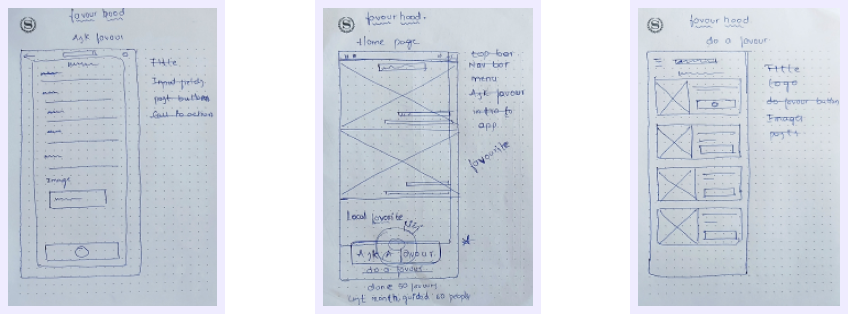 favour hood
Ask favour
Title
Input fields
post button
Call to action
Image
favour hood.
Home page
top bar
Nav bar
menu
Ask favour
intro to
app
favourite
Local favorite
Ask a favour
do a favour
done 50 favours
last month, guided 60 people
favour hood
do a favour
Title
Logo
do favour button
Images
posts